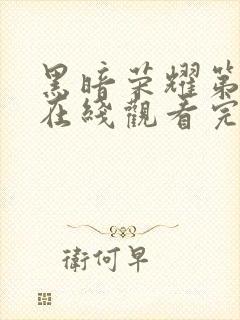 黑暗荣耀第
在綫觀看完
衛何早